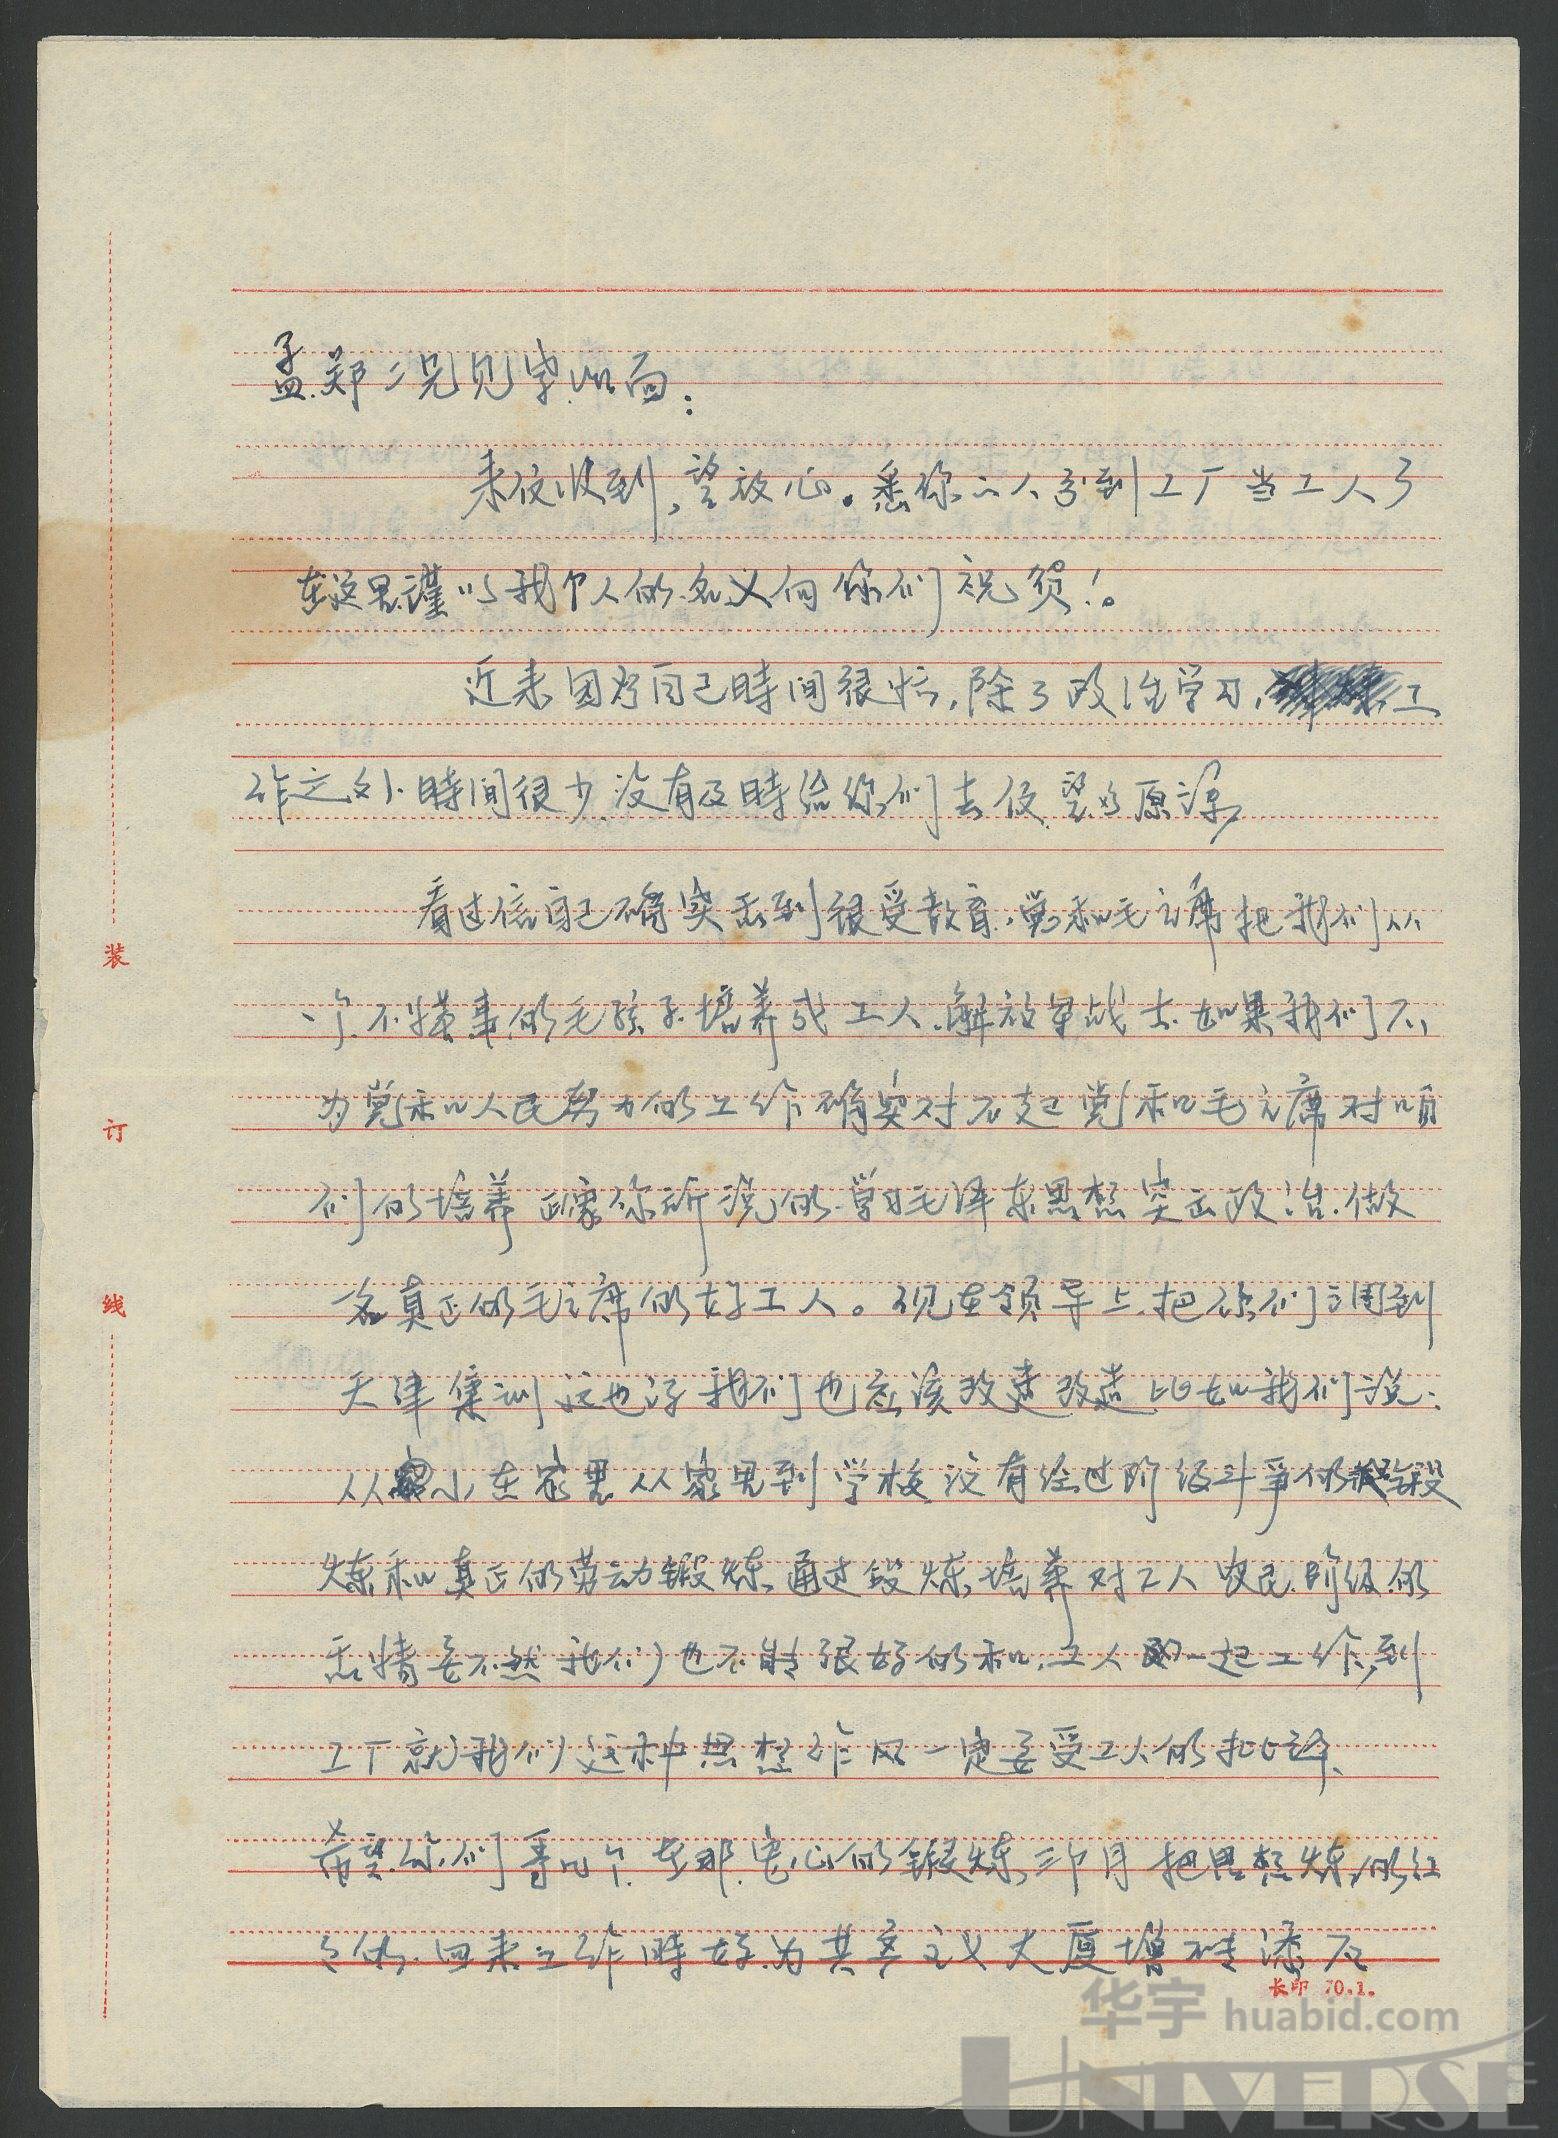 孟、郑二兄见字如面：
来信收到，望放心。悉你二人分到工厂当工人了
在这里谨以我个人的名义向你们祝贺！。
近来因为自己時间很忙，除了政治学习，工
作之外、時间很少、没有及時给你们去信、望为原谅、
看过信自己确实感到很受教育、党和毛主席把我们从
一个不懂事的毛孩子培养成工人、解放军战士、如果我们不
为党和人民努力的工作确实对不起党和毛主席对咱
们的培养正像你所说的、学习毛泽东思想突出政治、做
一名真正的毛主席的好工人。现在领导上把你们调到
天津集训这也好我们也应该改造改造比如我们说：
从小在家里从家里到学校没有经过阶级斗争的锻
炼和真正的劳动锻炼、通过锻炼培养对工人农民阶级的
感情要不然我们也不能很好的和工人一起工作、到
工厂就我们这种思想作风一定要受工人的批评、
希望你们哥几个在那安心的锻炼三个月把思想炼的红
红的、回来工作時好为共产主义大厦增砖添瓦
装
订
线
长印 70.1.
华宇 huabid.com
UNIVERSE